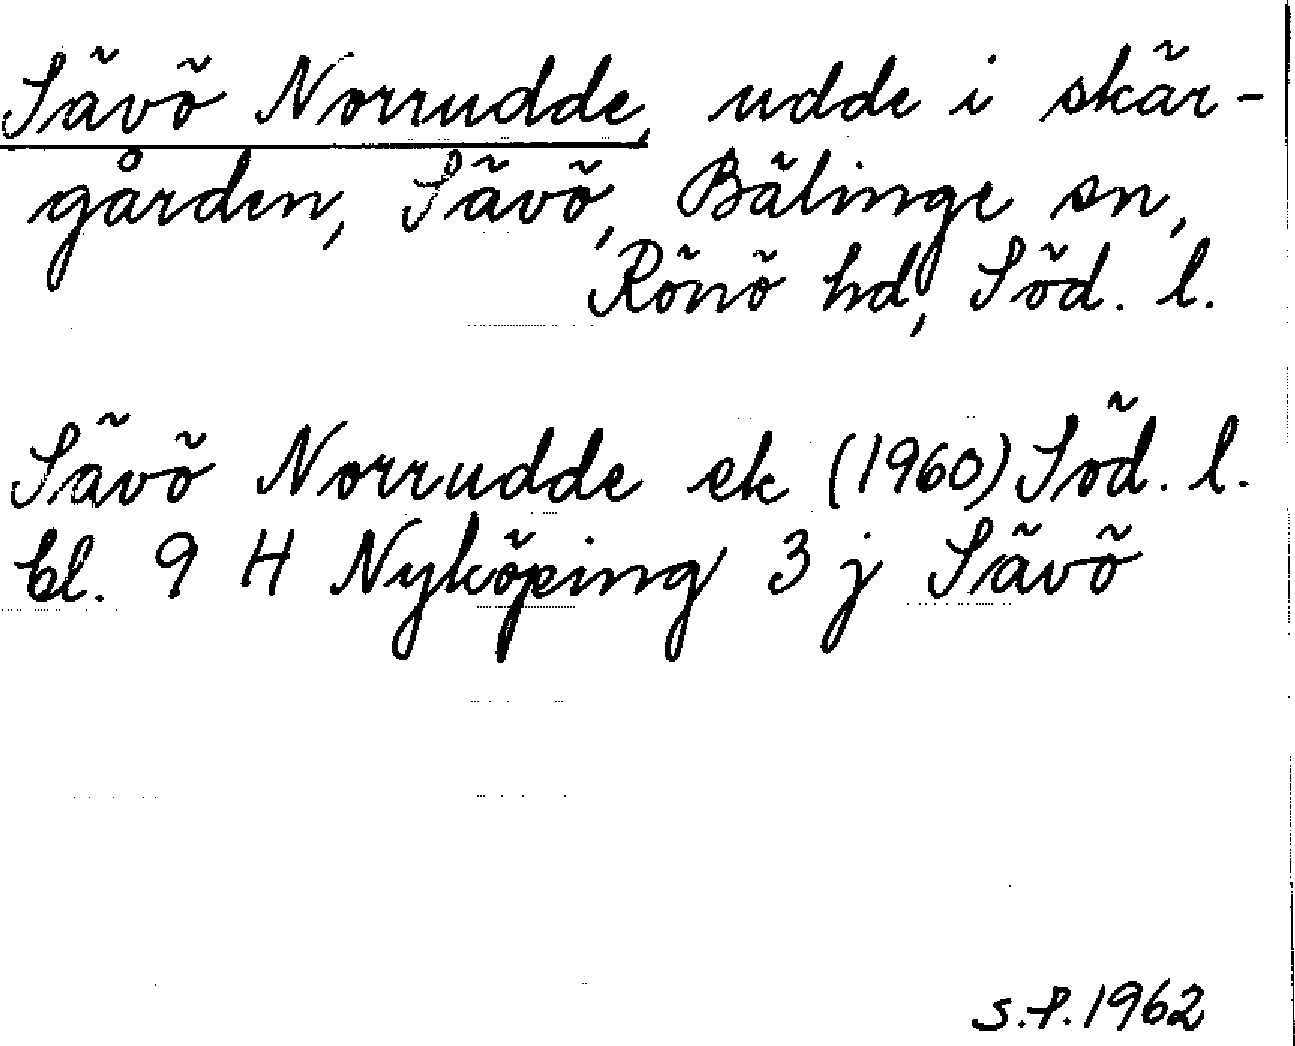 Sävö Norrudde, udde i skär-
gården, Sävö, Bälinge sn,
Rönö hd, Söd. l.
Sävö Norrudde ek (1960) Söd. l.
bl. 9 H Nyköping 3 j Sävö
S.P. 1962